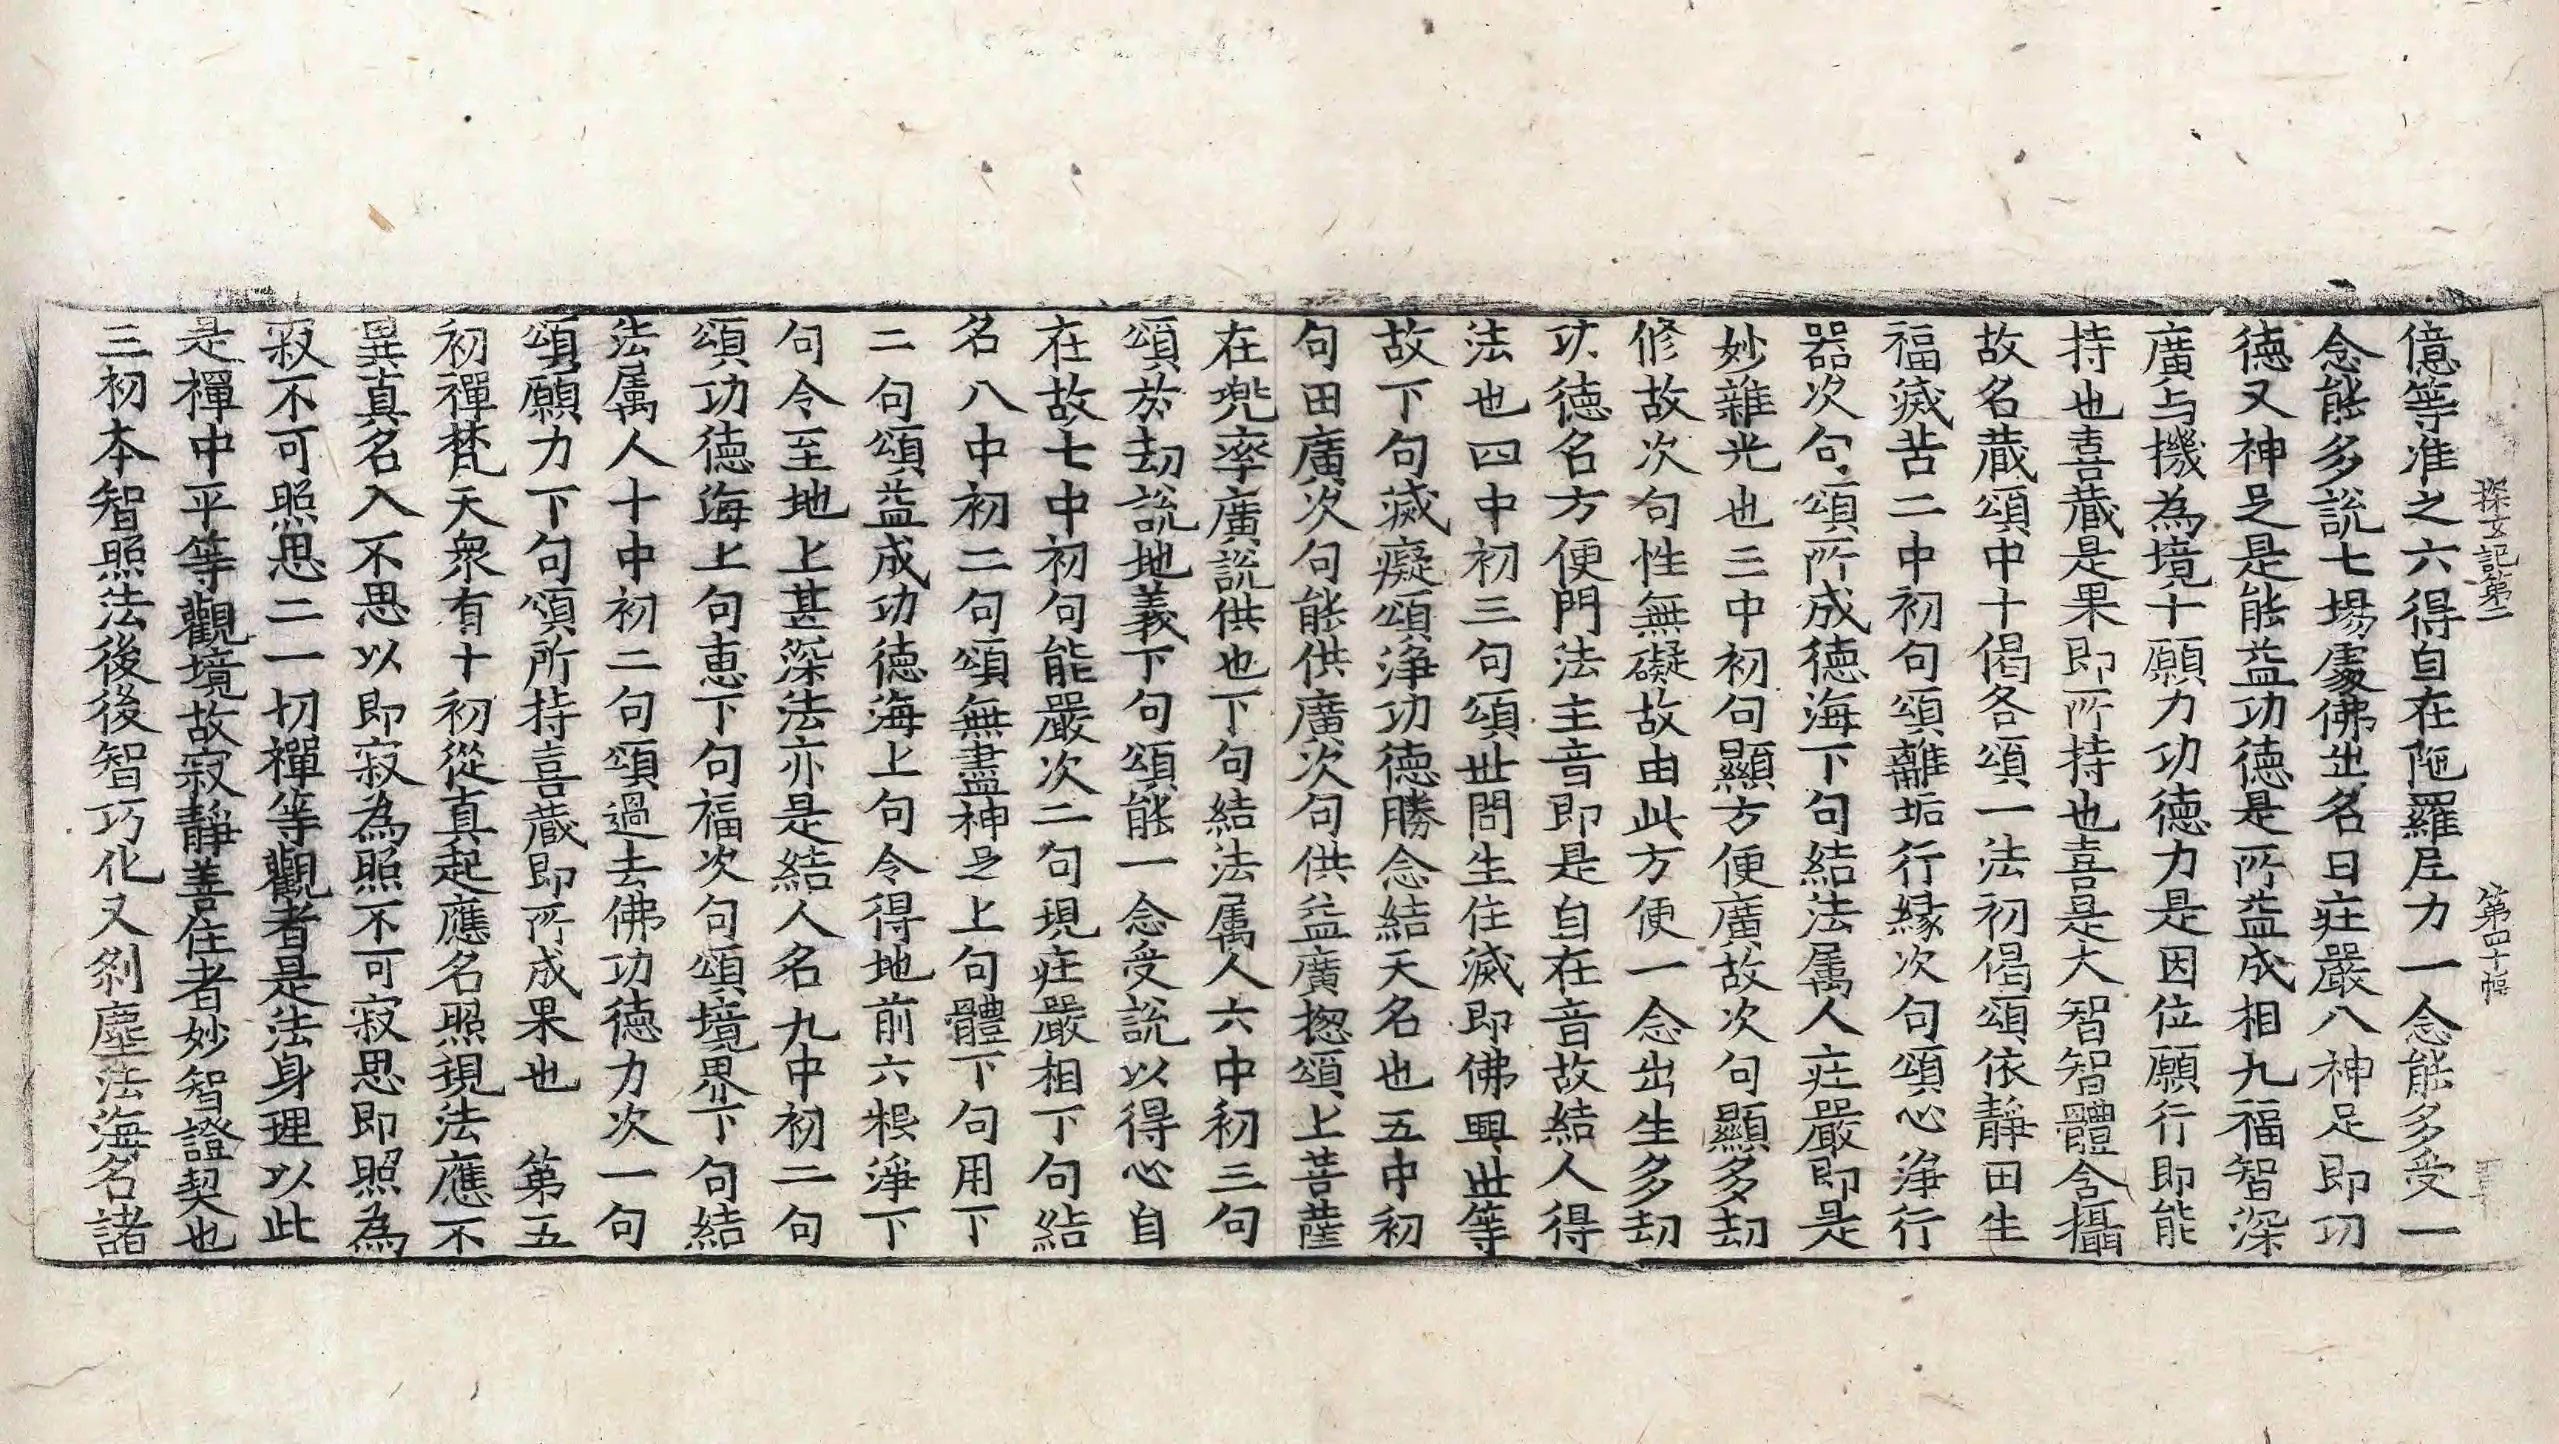 探玄記第二 第四十幅
億等准之六得自在陁羅尼力一念能多受一
念能多說七場處佛出名日莊嚴八神足即功
德又神足是能益功德是所益成相九福智深
廣与機為境十願力功德力是因位願行即能
持也喜藏是果即所持也喜是大智智體含攝
故名藏頌中十偈各頌一法初偈頌依靜田生
福滅苦二中初句頌離垢行緣次句頌心淨行
器次句頌所成德海下句結法属人莊嚴即是
妙雜光也三中初句顯方便廣故次句顯多劫
修故次句性無礙故由此方便一念出生多劫
功德名方便門法主音即是自在音故結人得
法也四中初三句頌世間生住滅即佛興世等
故下句滅癡頌淨功德勝念結天名也五中初
句田廣次句能供廣次句供益廣揔頌上菩薩
在兜率廣說供也下句結法属人六中初三句
頌於劫說地義下句頌能一念受說以得心自
在故七中初句能嚴次二句現莊嚴相下句結
名八中初二句頌無盡神足上句體下句用下
二句頌益成功德海上句令得地前六根淨下
句令至地上甚深法亦是結人名九中初二句
頌功德海上句恵下句福次句頌境界下句結
法属人十中初二句頌過去佛功德力次一句
頌願力下句頌所持喜藏即所成果也 第五
初禪梵天衆有十初從真起應名照現法應不
異真名入不思以即寂為照不可寂思即照為
寂不可照思二一切禪等觀者是法身理以此
是禪中平等觀境故寂靜善住者妙智證契也
三初本智照法後後智巧化又剎塵法海名諸